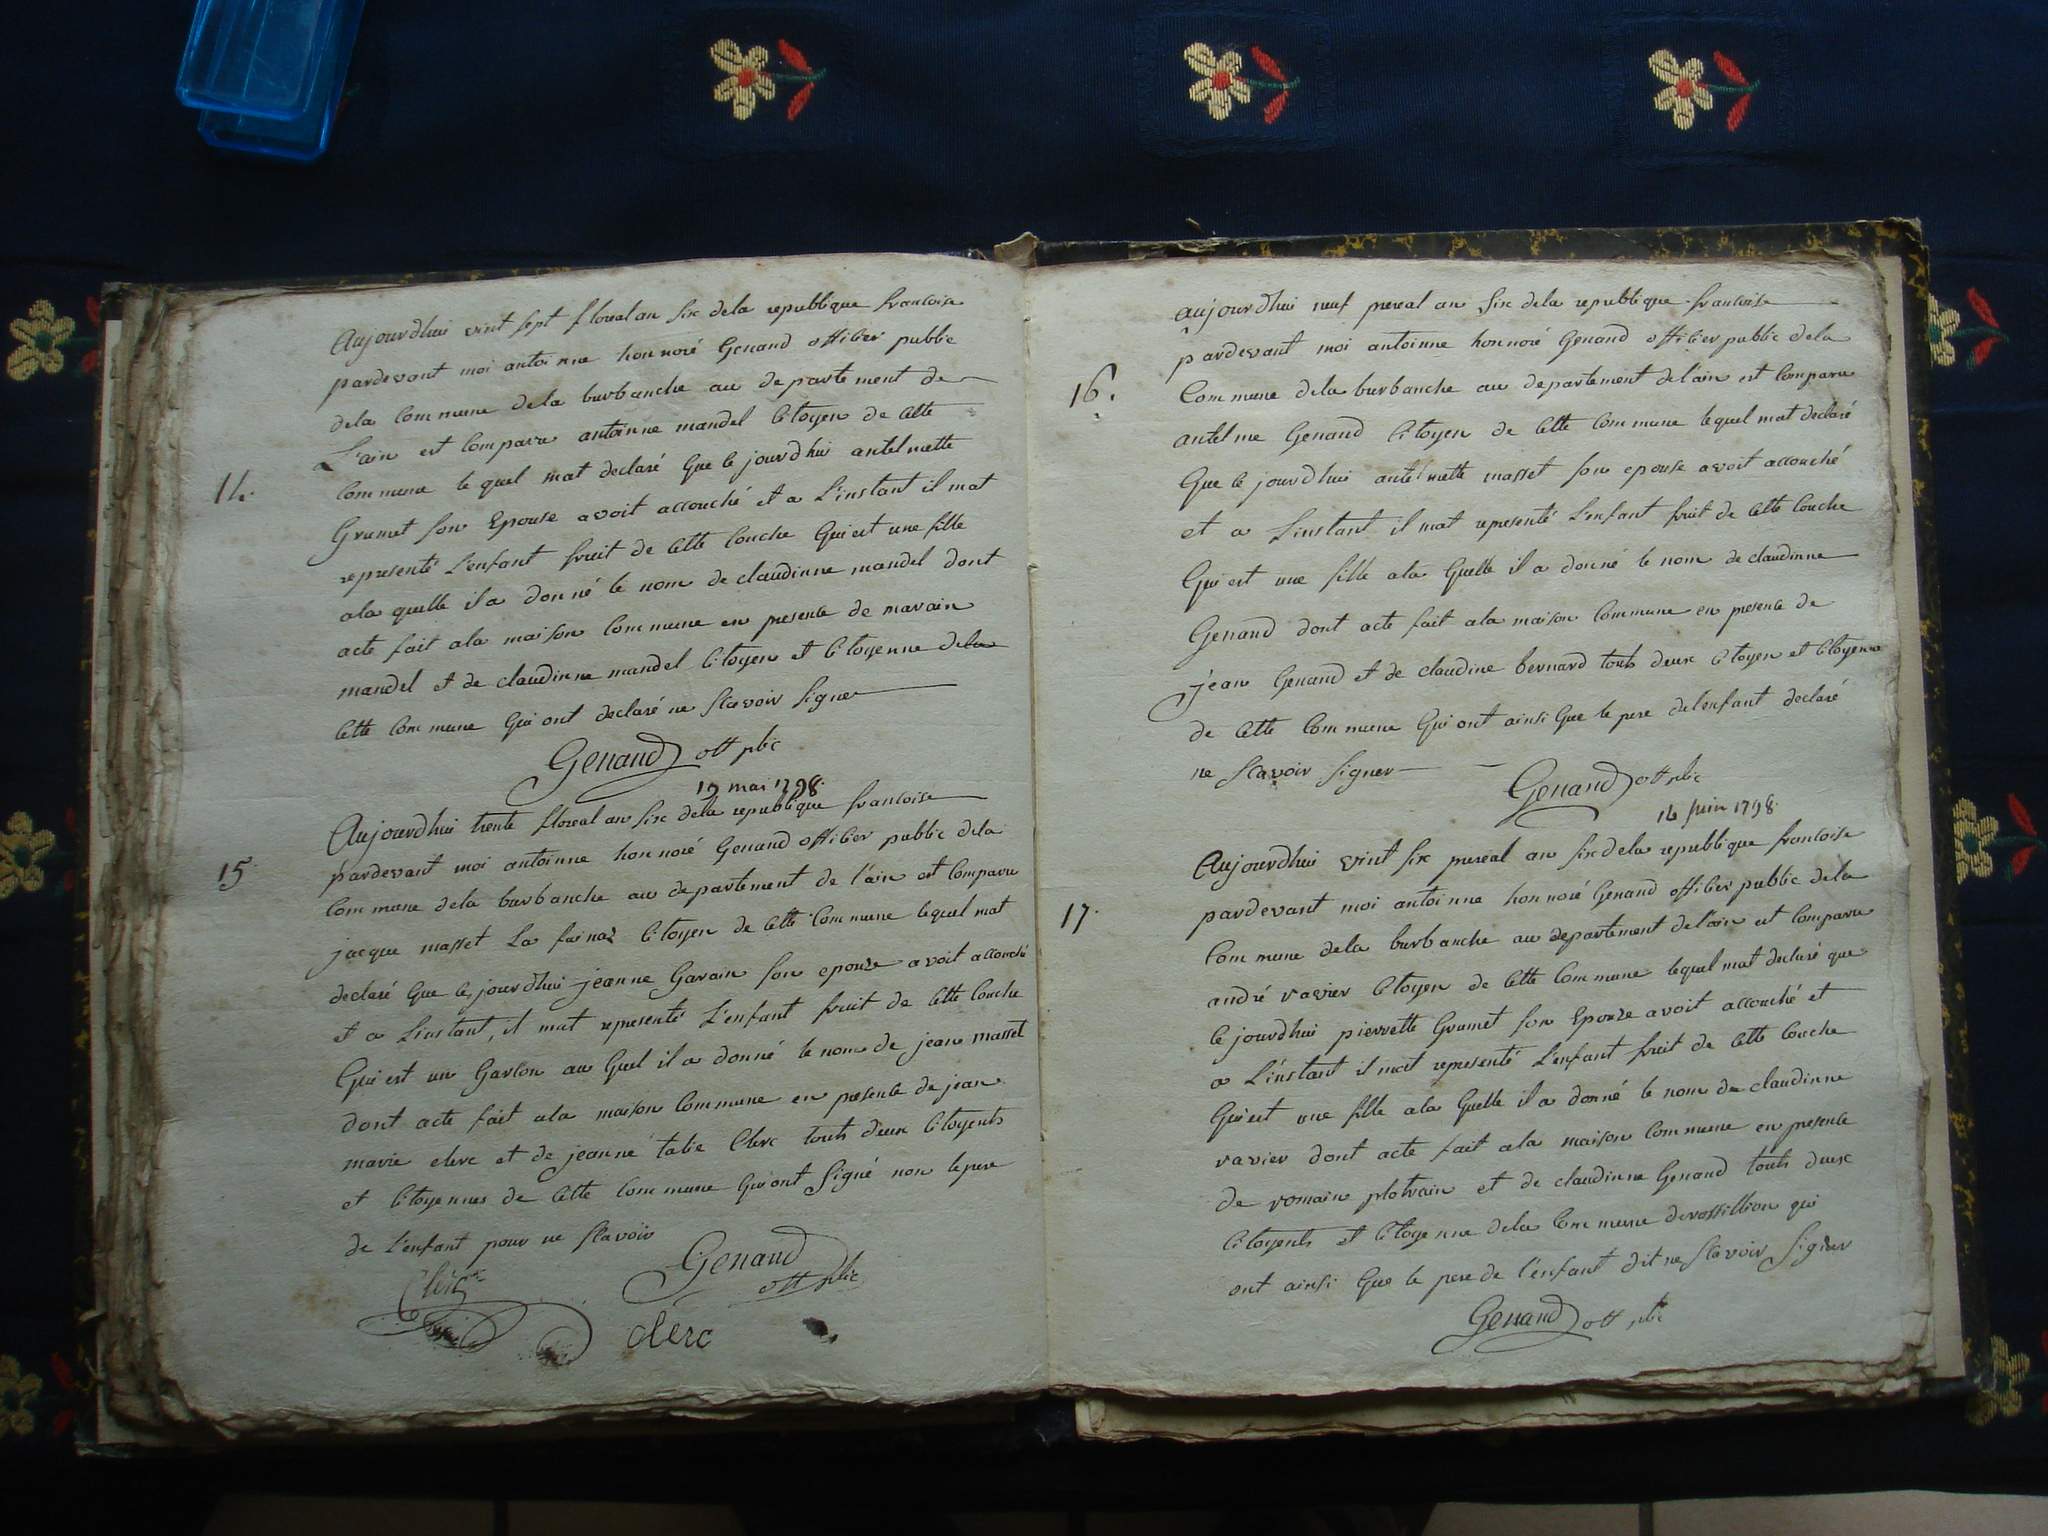 Aujourdhui vint sept floreal an six dela republique francoise
pardevant moi antoinne honnoré Genand officier public
dela commune dela burbanche au departement de
L'ain est comparu antoinne mandel citoyen de cette
14.
commune le quel mat declaré que ce jourdhui antelmette
Grumet son Epouse avoit accouché et a L'instant il mat
representé L'enfant fruit de cette couche qui est une fille
ala quelle il a donné le nom de claudinne mandel dont
acte fait ala maison commune en presence de
mandel et de claudinne mandel citoyen et citoyenne dela
cette commune qui ont declaré ne scavoir signer
Genand off pbic
19 mai 1798.
Aujourdhui trente floreal an six dela republique francoise
15
pardevant moi antoinne honnoré Genand officier public dela
commune dela burbanche au departement de l'ain est comparu
jacque masset La citoyen de cette commune lequel mat
declaré que ce jourdhui jeanne Gavain son epouze avoit accouché
et a Linstant, il mat representé L'enfant fruit de cette couche
Qui est un Garcon au quel il a donné le nom de jean masset
dont acte fait ala maison commune en presence de jean
marie clerc et de jeanne Clerc touts deux citoyents
et citoyennes de cette commune qui ont signé non le pere
de L'enfant pour ne scavoir
Clerc
Genand
off pbic
clerc
aujourdhui neuf prereal an six dela republique francoise
pardevant moi antoinne honnoré Genand officier public dela
16.
commune dela burbanche au departement delain est comparu
antelme Genand citoyen de cette commune lequel mat declaré
que ce jourdhui antelmette masset son epouse avoit accouché
et a Linstant il mat representé L'enfant fruit de cette couche
Qui est une fille ala quelle il a donné le nom de claudinne
Genand dont acte fait ala maison commune en presence de
jean Genand et de claudine bernard touts deux citoyen et citoyenne
de cette commune qui ont ainsi que le pere delenfant declaré
ne scavoir signer
Genand off pbic
14 juin 1798.
Aujourdhui vint six prereal an six dela republique francoise
17.
pardevant moi antoinne honnoré Genand officier public dela
commune dela burbanche au departement delain est comparu
andré ravier citoyen de cette commune lequel mat declaré que
ce jourdhui pierrette Grumet son Epouze avoit accouché et
a L'instant il mat representé L'enfant fruit de cette couche
Qui est une fille ala quelle il a donné le nom de claudinne
ravier dont acte fait ala maison commune en presence
de romain et de claudinne Genand touts deux
citoyents et citoyenne dela commune derossillion qui
ont ainsi que le pere de l'enfant dit ne scavoir signer
Genand off pbic